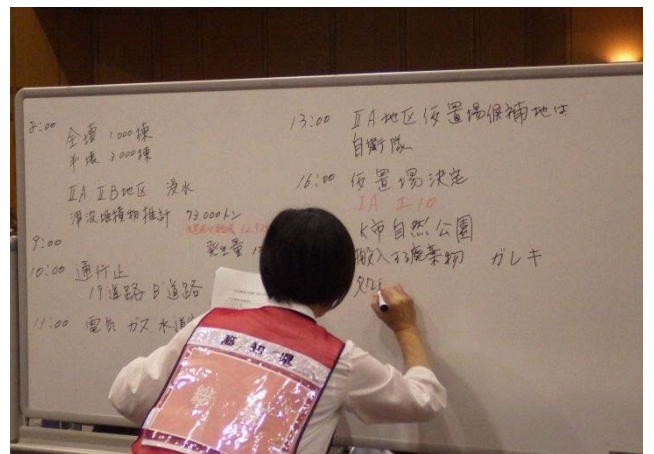 8:00 全壊 1,000棟
半壊 3,000棟
ⅡA ⅡB地区 浸水
津波堆積物推計 73,000トン
発生量
9:00
10:00 通行止
19道路 B道路
11:00 電気 ガス 水道
13:00 ⅡA地区仮置場候補地は
自衛隊
16:00 仮置場決定
ⅠA Ⅰ-10
K市自然公園
搬入する廃棄物 ガレキ
知県